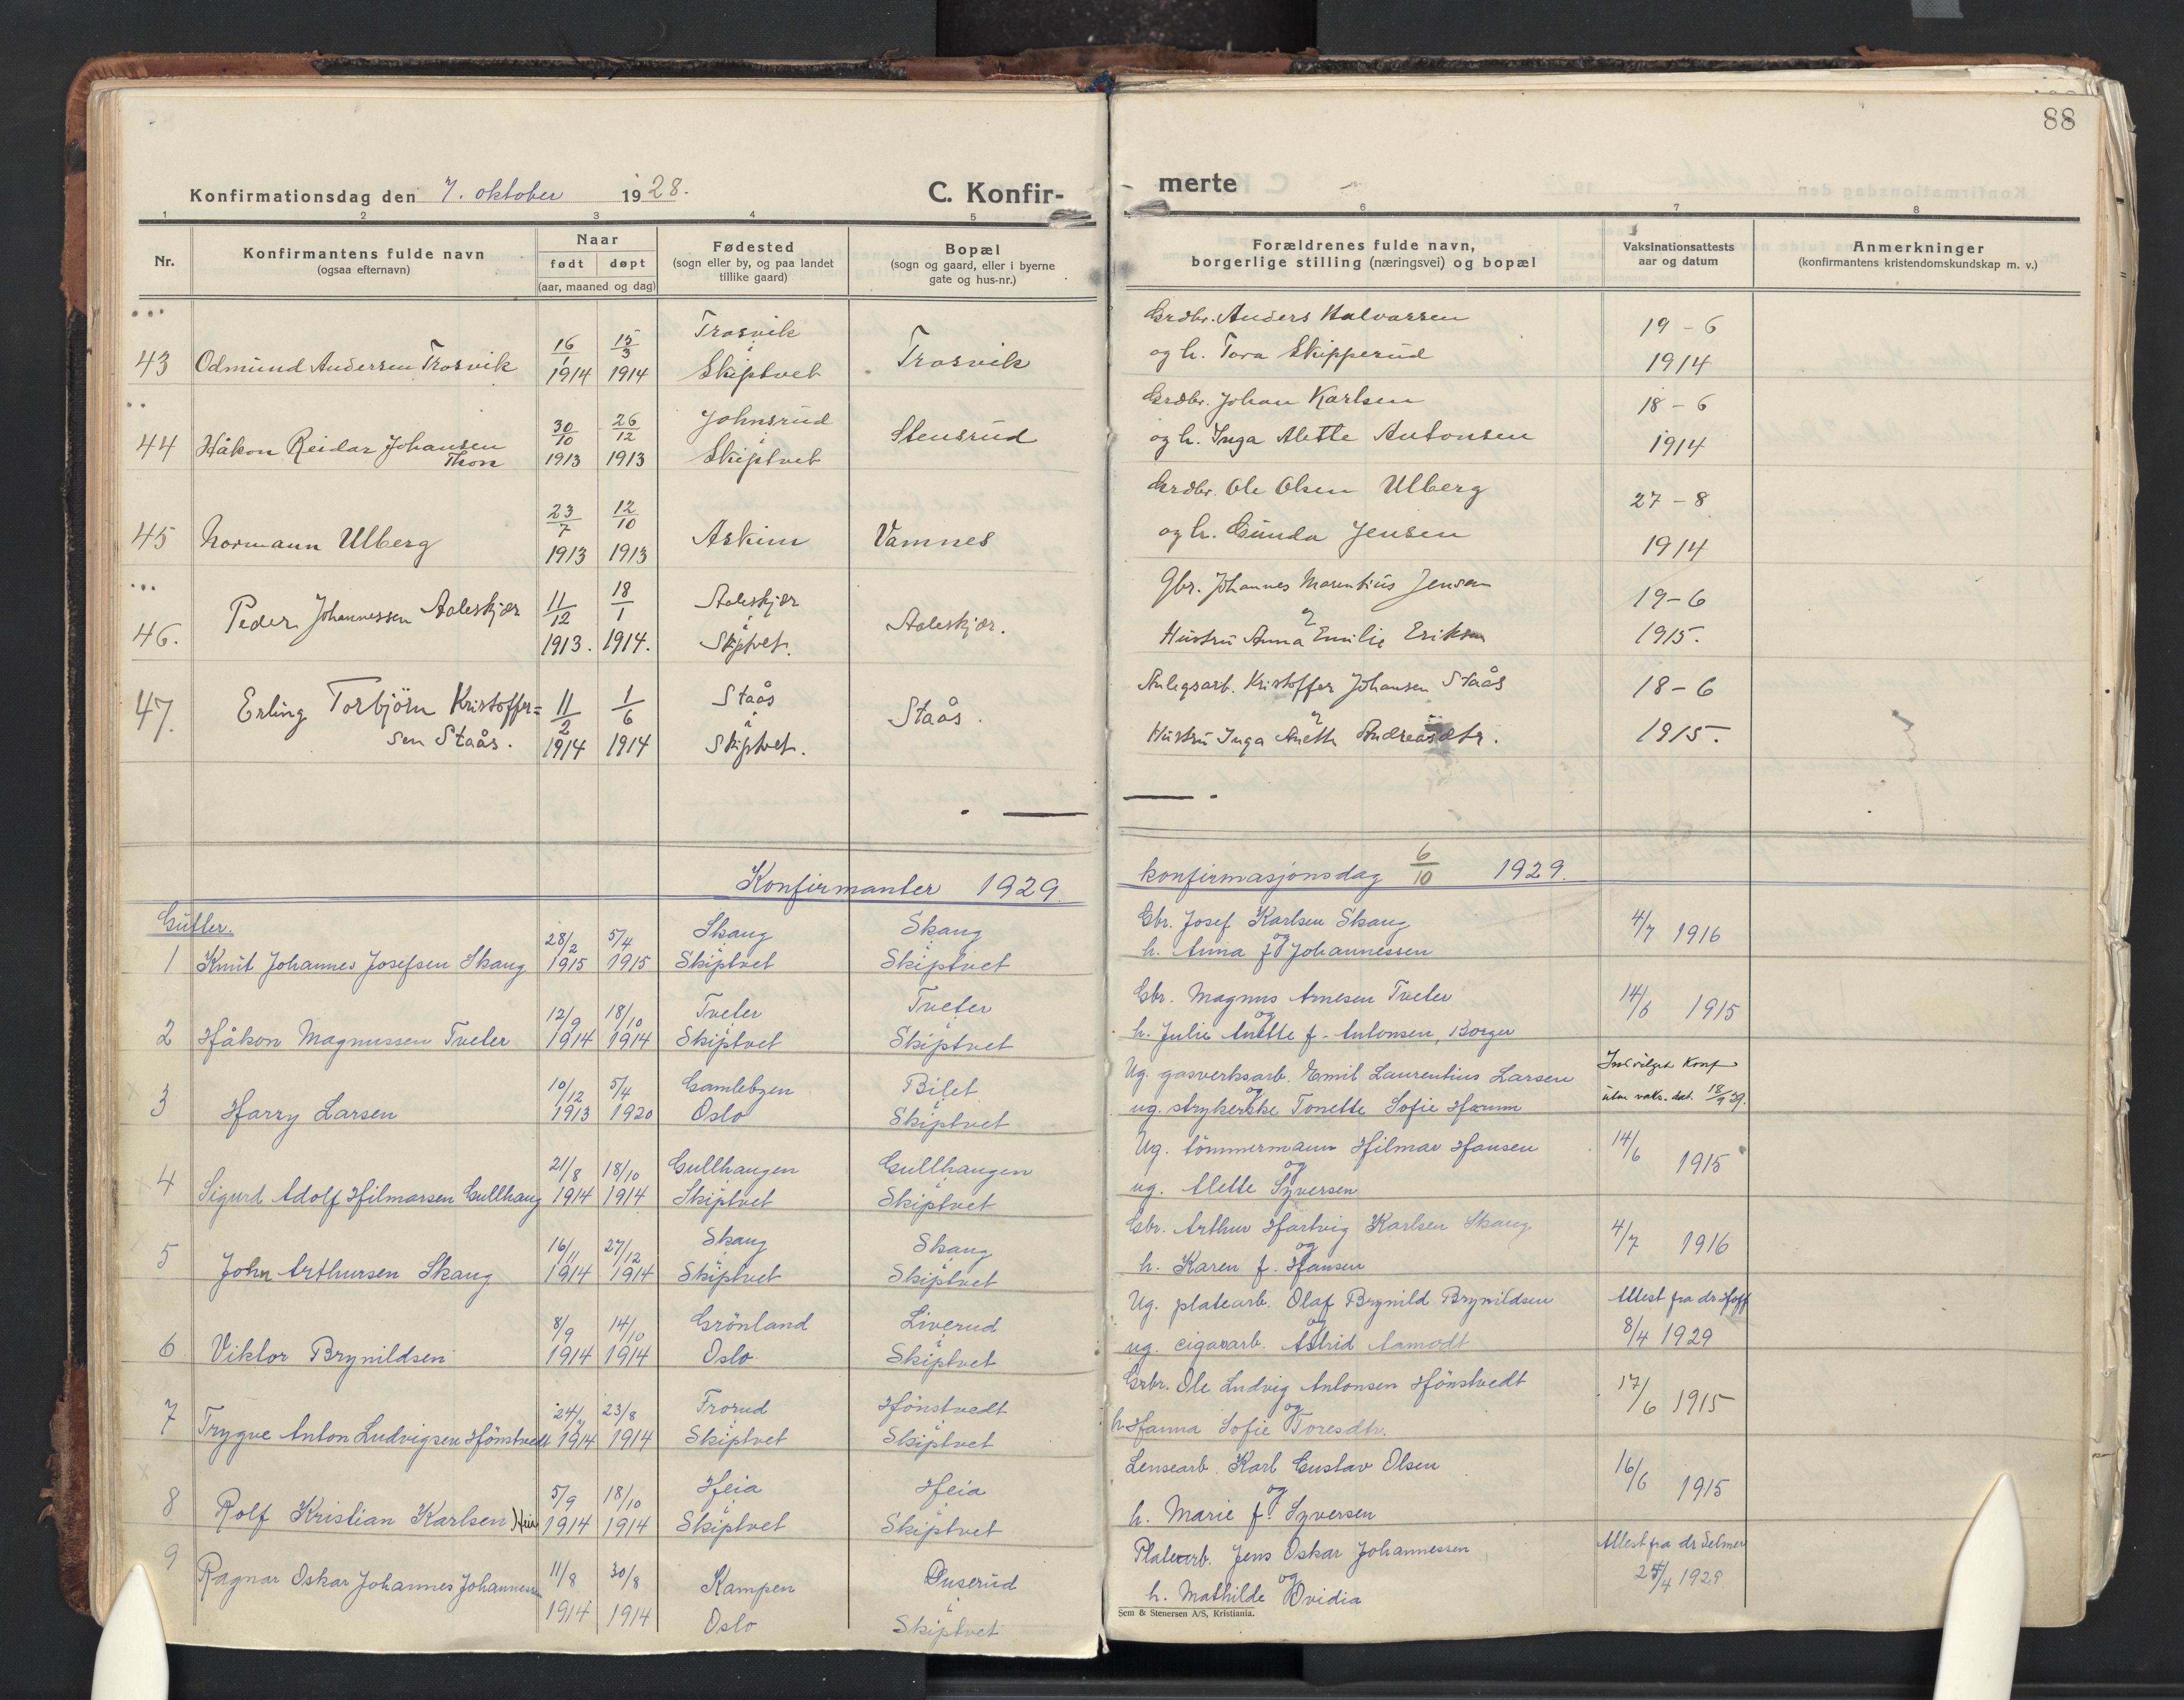 88
Konfirmationsdag den 7. oktober 1928.
C. Konfir-
merte
1 2 3 4 5 6 7 8
Nr.
Konfirmantens fulde navn
(ogsaa efternavn)
Naar
født døpt
(aar, maaned og dag)
Fødested
(sogn eller by, og paa landet
tillike gaard)
Bopæl
(sogn og gaard, eller i byerne
gate og hus-nr.)
Forældrenes fulde navn,
borgerlige stilling (næringsvei) og bopæl
Vaksinationsattests
aar og datum
Anmerkninger
(konfirmantens kristendomskundskap m. v.)
16/1 15/3 Trosvik i Grdbr. Anders Halvorsen 19-6
43 Odmund Andersen Trosvik 1914 1914 Skiptvet Trosvik og h. Tora Skipperud 1914
30/10 26/12 Johnsrud i Grdbr. Johan Karlsen 18-6
44 Håkon Reidar Johansen Thon 1913 1913 Skiptvet Stensrud og h. Inga Alette Antonsen 1914
23/7 12/10 Grdbr. Ole Olsen Ulberg 27-8
45 Normann Ulberg 1913 1913 Askim Vamnes og h. Gunda Jensen 1914
11/12 18/1 Aaleskjær i Gbr. Johannes Marentius Jensen 19-6
46. Peder Johannessen Aaleskjær 1913. 1914. Skiptvet. Aaleskjær. Hustru Anna Emilie Eriksen 1915.
47. Erling Torbjörn Kristoffer= 11/2 1/6 Staås i Staås. Anlegsarb. Kristoffer Johansen Staås 18-6
sen Staås. 1914 1914 Skiptvet. Hustru Inga Anette Andreasdtr. 1915.
Konfirmanter 1929. konfirmasjonsdag 6/10 1929.
Gutter.
28/2 5/4 Skaug i Skaug i Gbr. Josef Karlsen Skaug og 4/7 1916
1 Knut Johannes Josefsen Skaug 1915 1915 Skiptvet Skiptvet h. Anna f. Johannessen
12/9 18/10 Tveter i Tveter i Gbr. Magnus Arnesen Tveter og 14/6 1915
2 Håkon Magnussen Tveter 1914 1914 Skiptvet Skiptvet h. Julie Anette f. Antonsen, Borger
10/12 5/4 Gamlebyen Bilet i Ug. gasverksarb. Emil Laurentius Larsen og Innvilget Konf
3 Harry Larsen 1913 1920 Oslo Skiptvet ug. strykerske Tonette Sofie Harum uten vaks. dat. 18/9 29.
21/8 18/10 Gullhaugen i Gullhaugen i Ug. tömmermann Hilmar Hansen og 14/6 1915
4 Sigurd Adolf Hilmarsen Gullhaug 1914 1914 Skiptvet Skiptvet ug. Alette Syversen
16/11 27/12 Skaug i Skaug i Gbr. Arthur Hartvig Karlsen Skaug og 4/7 1916
5 John Arthursen Skaug 1914 1914 Skiptvet Skiptvet h. Karen f. Hansen
8/9 14/10 Grönland Liverud i Ug. platearb. Olaf Brynild Brynildsen og Attest fra dr Hoff
6 Viktor Brynildsen 1914 1914 Oslo Skiptvet ug. cigararb. Astrid Aamodt 8/4 1929
24/7 23/8 Frorud i Hönstvedt i Grbr. Ole Ludvig Antonsen Hönstvedt og 17/6 1915
7 Trygve Anton Ludvigsen Hönstvedt 1914 1914 Skiptvet Skiptvet h. Hanna Sofie Toresdtr.
5/9 18/10 Heia i Heia i Lensearb. Karl Gustav Olsen og 16/6 1915
8 Rolf Kristian Karlsen Heia 1914 1914 Skiptvet Skiptvet h. Marie f. Syversen
9 Ragnar Oskar Johannes Johannessen 11/8 30/8 Kampen i Platearb. Jens Oskar Johannessen og Attest fra dr Selmer
1914 1914 Oslo Skiptvet h. Mathilde Ovidia /4 1929
Sem & Stenersen A/S, Kristiania.